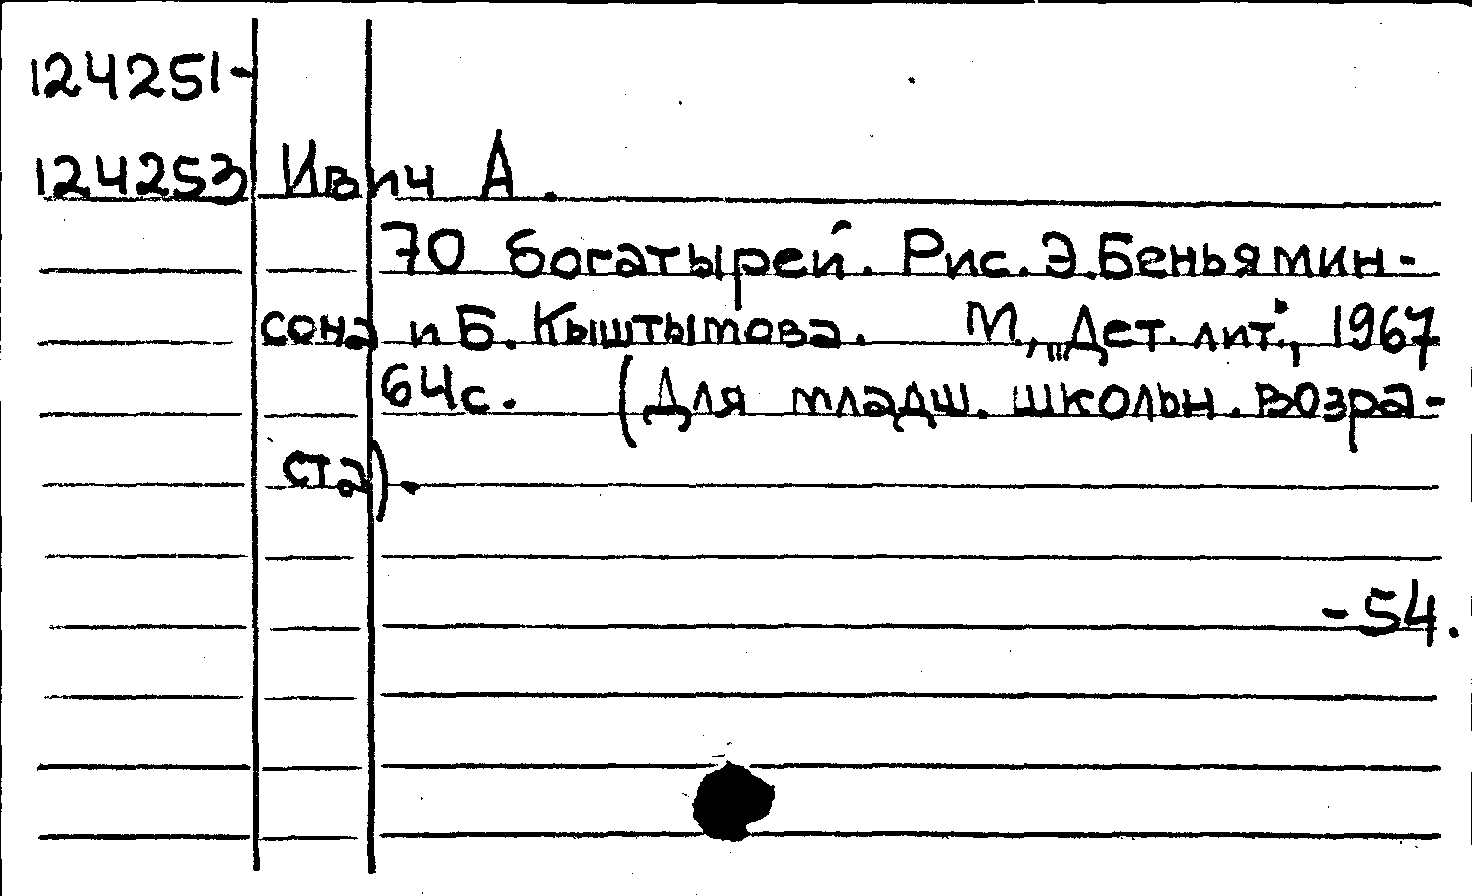 124251-
124253 Ивич А.
70 богатырей. Рис. Э. Беньямин-
сона и Б. Кыштымова. М., „Дет. лит.", 1967
64с. (Для младш. школьн. возра-
ста).
-54.